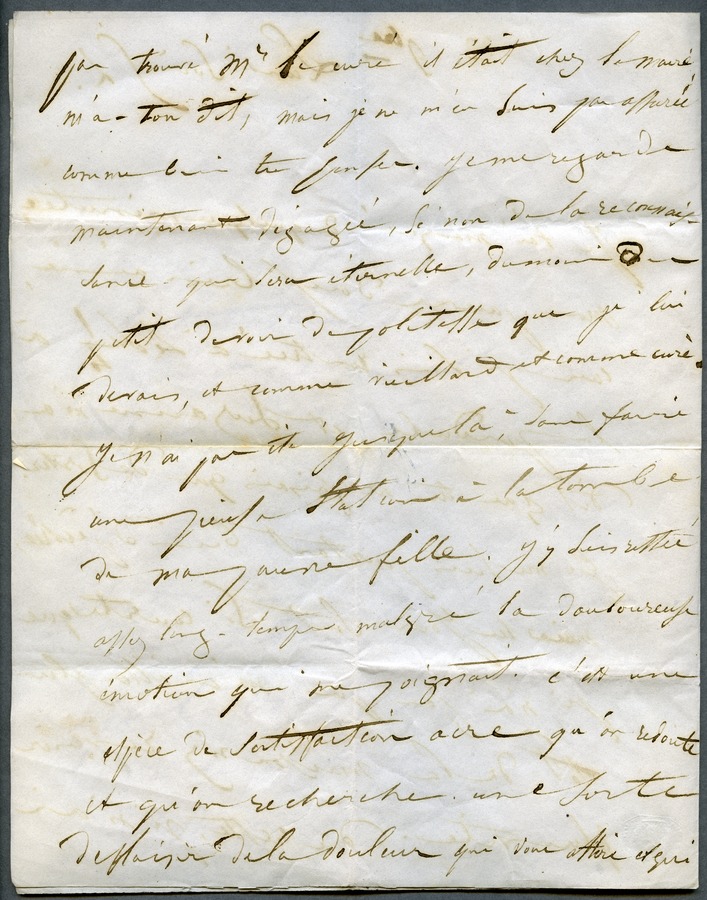 pas trouvé Mr le curé il était chez le maire
m'a-t-on dit, mais je ne m'en suis pas
comme bien tu penses. je me regarde
maintenant dégagée, si non de la reconnais
sance qui sera éternelle, du moins de ce
petit devoir de politesse que je lui
devais, et comme vieillard et comme curé.
je n'ai pas été jusque là, sans faire
une pieuse station à la tombe
de ma pauvre fille. j'y suis restée
assez long-temps malgré la douloureuse
émotion qui me poignait. c'est une
espèce de satisfaction acre qu'on redoute
et qu'on recherche. une sorte
de plaisir de la douleur qui vous attire et qui